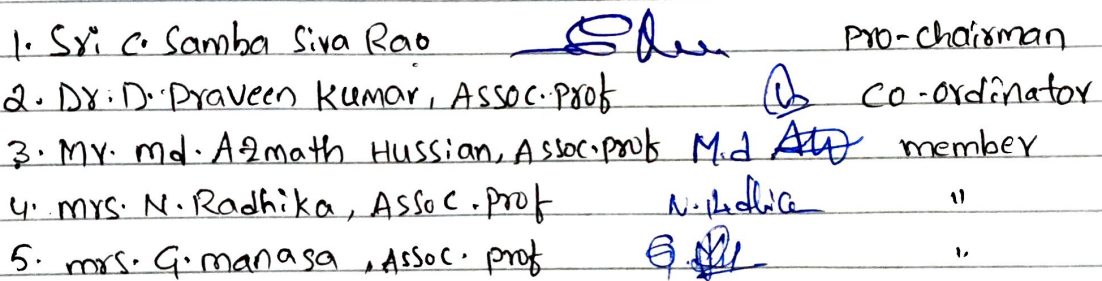 1. Sri C. Samba Siva Rao Pro-chairman
2. Dr. D. Praveen Kumar, Assoc. Prof Co-ordinator
3. Mr. md. Azmath Hussian, Assoc. prof M.d member
4. mrs. N. Radhika, Assoc. prof N. Radhica "
5. mrs. G. manasa, Assoc. prof G. "